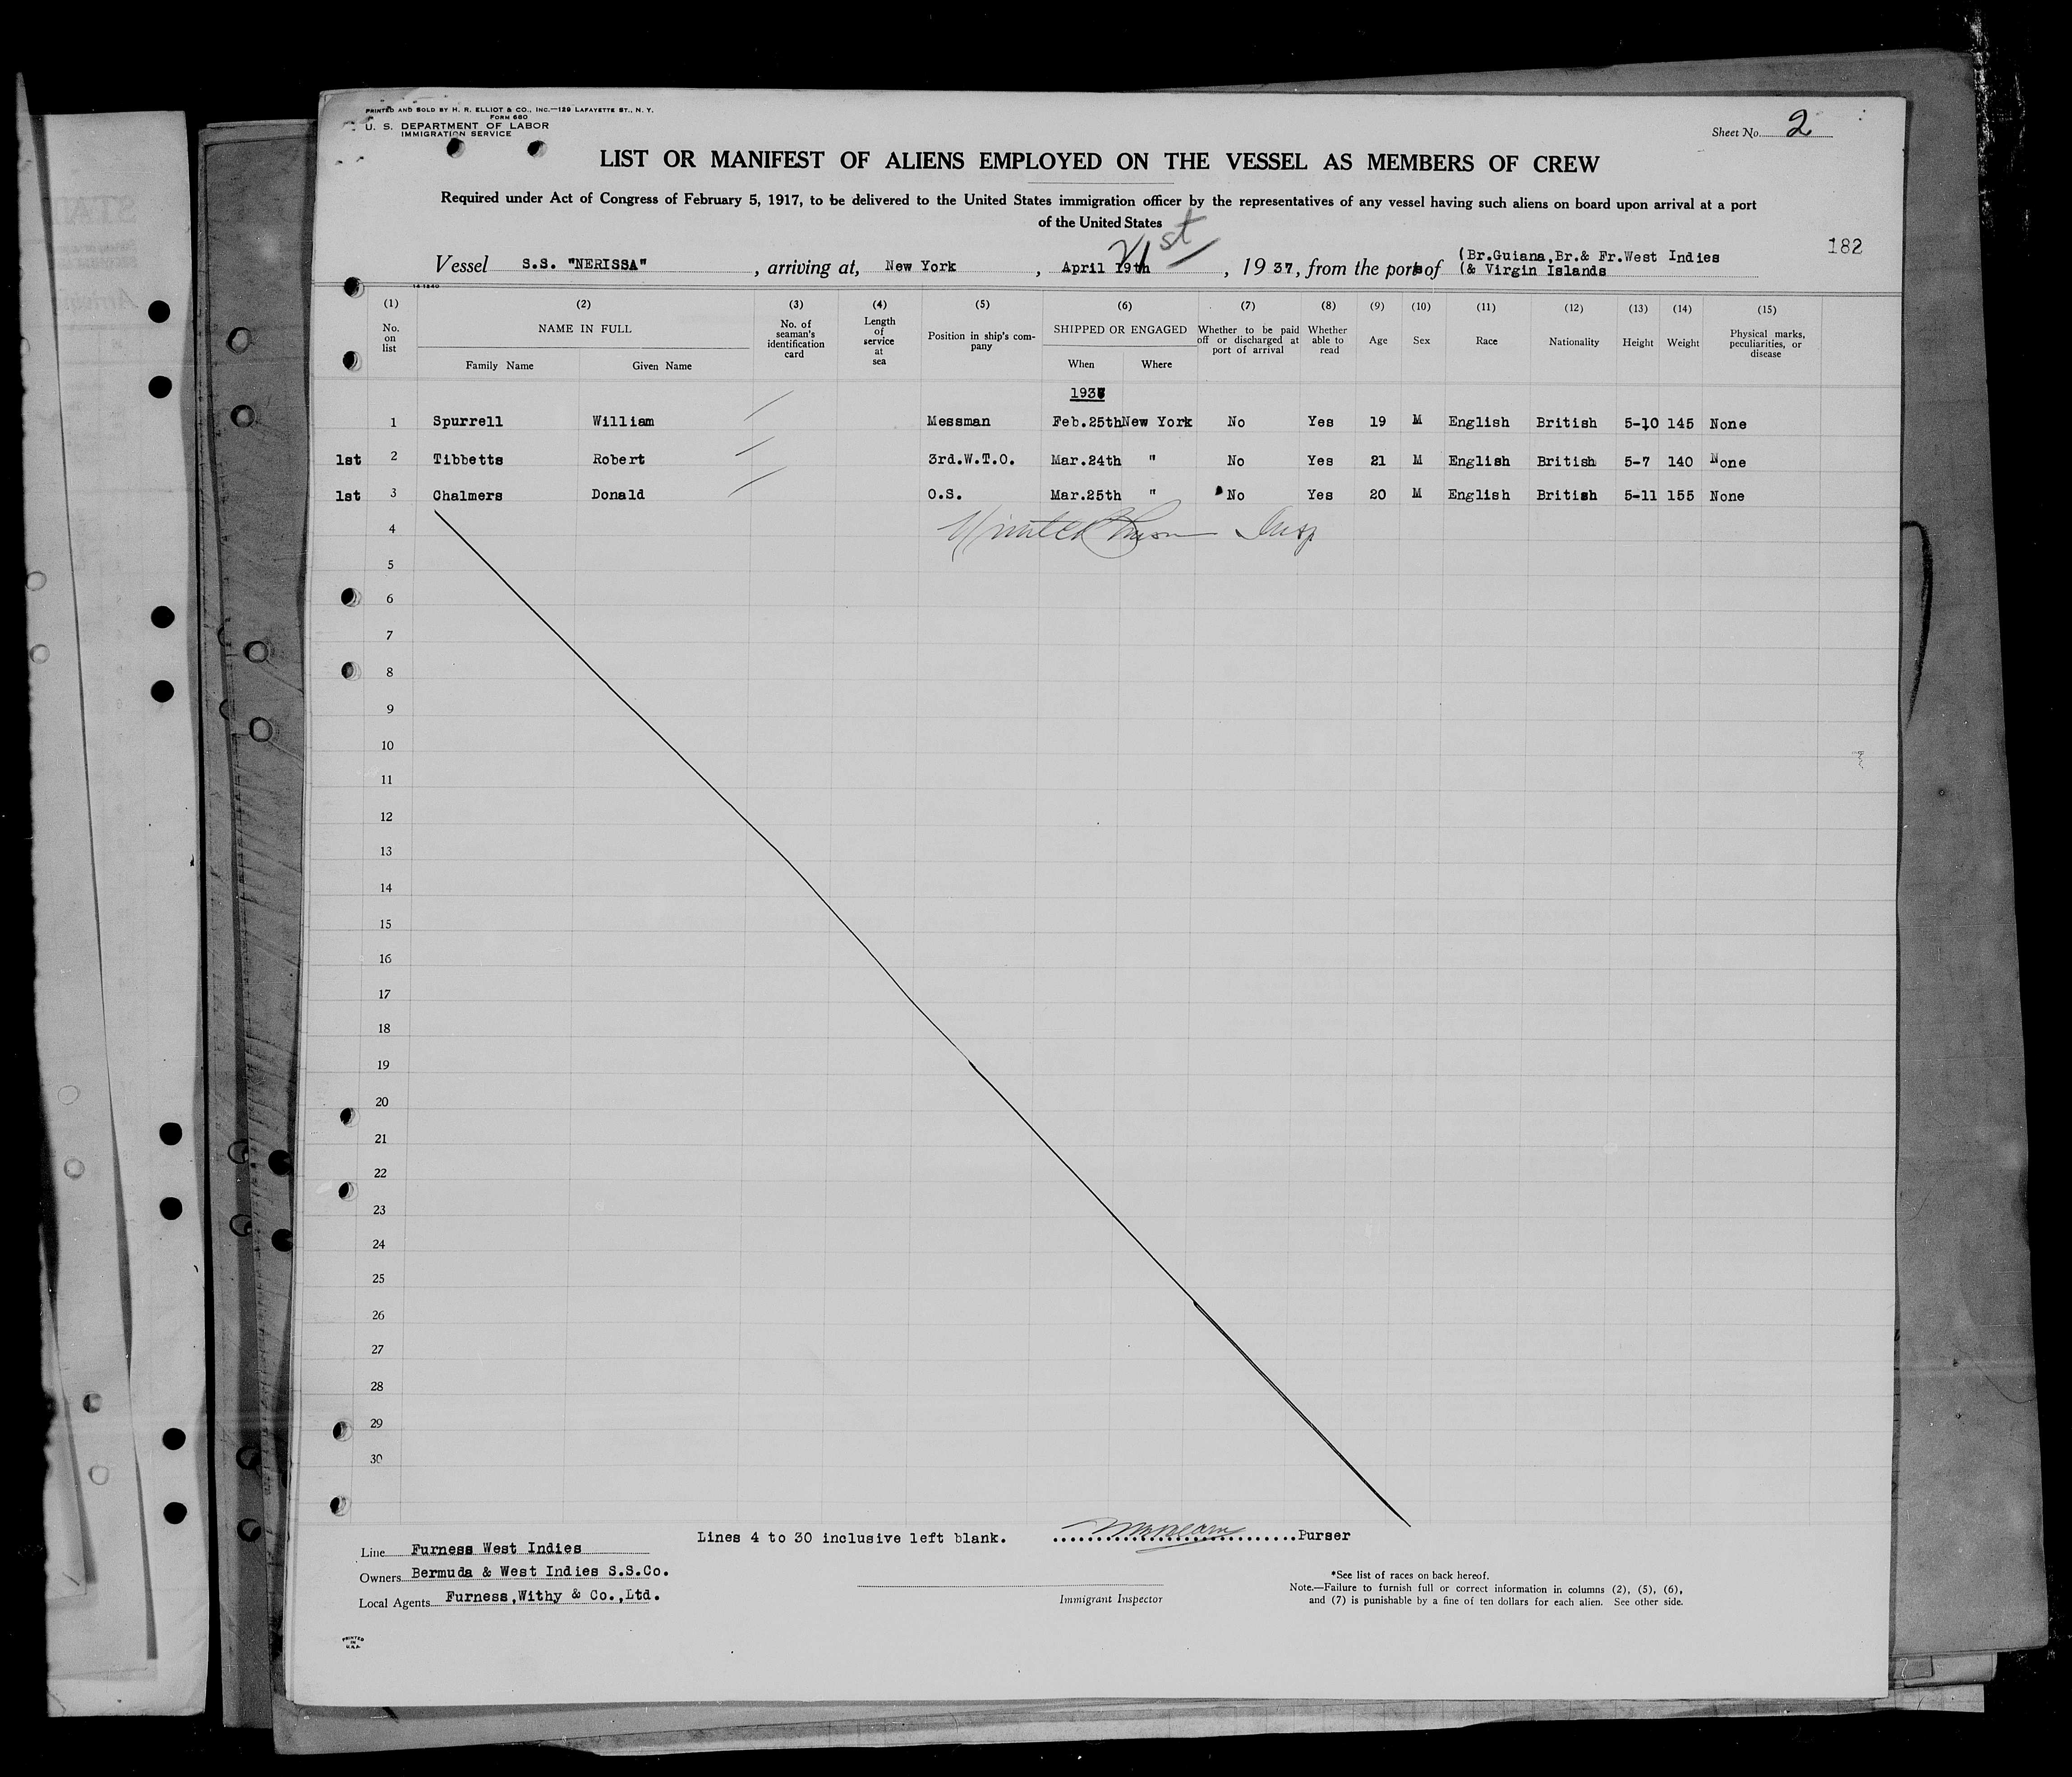 PRINTED AND SOLD BY H. R. ELLIOT & CO., INC.—129 LAFAYETTE ST., N. Y.
FORM 680
U. S. DEPARTMENT OF LABOR
IMMIGRATION SERVICE
Sheet No. 2
LIST OR MANIFEST OF ALIENS EMPLOYED ON THE VESSEL AS MEMBERS OF CREW
Required under Act of Congress of February 5, 1917, to be delivered to the United States immigration officer by the representatives of any vessel having such aliens on board upon arrival at a port
of the United States
182
21st
Vessel S.S. "NERISSA", arriving at, New York, April 19th, 1937, from the ports of (Br.Guiana,Br.& Fr.West Indies
(& Virgin Islands
(1) (2) (3) (4) (5) (6) (7) (8) (9) (10) (11) (12) (13) (14) (15)
No. on list NAME IN FULL Family Name Given Name No. of seaman's identification card Length of service at sea Position in ship's company SHIPPED OR ENGAGED When Where Whether to be paid off or discharged at port of arrival Whether able to read Age Sex Race Nationality Height Weight Physical marks, peculiarities, or disease
1937
1 Spurrell William Messman Feb.25th New York No Yes 19 M English British 5-10 145 None
1st 2 Tibbetts Robert 3rd.W.T.O. Mar.24th " No Yes 21 M English British 5-7 140 None
1st 3 Chalmers Donald O.S. Mar.25th " No Yes 20 M English British 5-11 155 None
4 Insp
5
6
7
8
9
10
11
12
13
14
15
16
17
18
19
20
21
22
23
24
25
26
27
28
29
30
Lines 4 to 30 inclusive left blank. Purser
Line Furness West Indies
Owners Bermuda & West Indies S.S.Co.
Local Agents Furness,Withy & Co.,Ltd.
Immigrant Inspector
*See list of races on back hereof.
Note.—Failure to furnish full or correct information in columns (2), (5), (6),
and (7) is punishable by a fine of ten dollars for each alien. See other side.
PRINTED
IN
U.S.A.